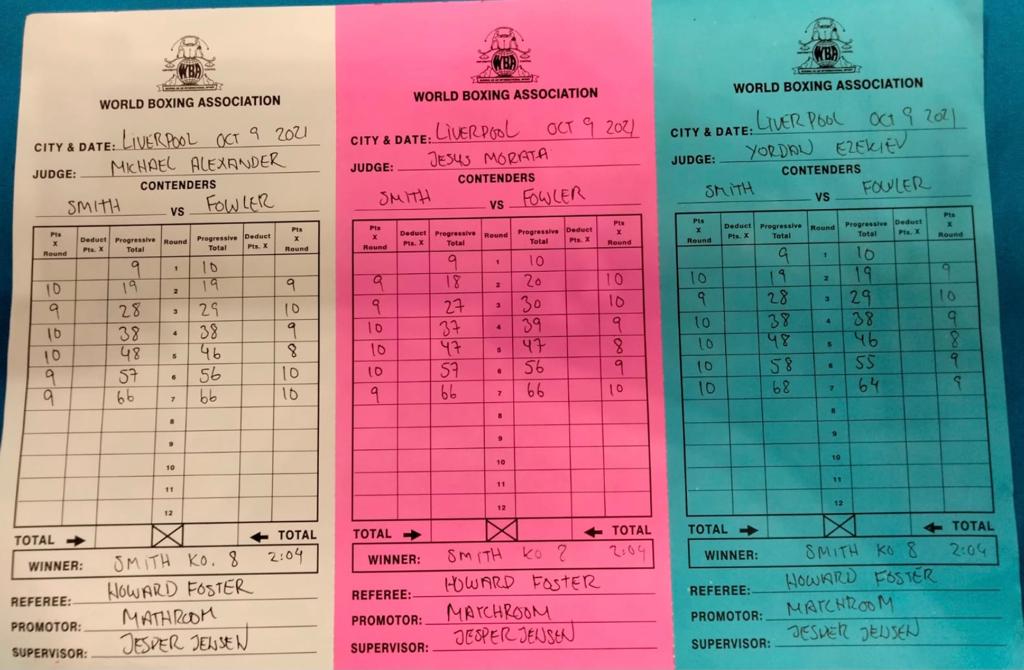 WBA
WORLD BOXING ASSOCIATION
CITY & DATE: LIVERPOOL OCT 9 2021
JUDGE: MICHAEL ALEXANDER
CONTENDERS
SMITH VS FOWLER
Pts X Round Deduct Pts. X Progressive Total Round Progressive Total Deduct Pts. X Pts X Round
9 1 10
10 19 2 19 9
9 28 3 29 10
10 38 4 38 9
10 48 5 46 8
9 57 6 56 10
9 66 7 66 10
8
9
10
11
12
TOTAL TOTAL
WINNER: SMITH KO. 8 2:04
REFEREE: HOWARD FOSTER
PROMOTOR: MATHROOM
SUPERVISOR: JESPER JENSEN
WBA
WORLD BOXING ASSOCIATION
CITY & DATE: LIVERPOOL OCT 9 2021
JUDGE: JESUS MORATA
CONTENDERS
SMITH VS FOWLER
Pts X Round Deduct Pts. X Progressive Total Round Progressive Total Deduct Pts. X Pts X Round
9 1 10
9 18 2 20 10
9 27 3 30 10
10 37 4 39 9
10 47 5 47 8
10 57 6 56 9
9 66 7 66 10
8
9
10
11
12
TOTAL TOTAL
WINNER: SMITH KO 2:04
REFEREE: HOWARD FOSTER
PROMOTOR: MATCHROOM
SUPERVISOR: JESPER JENSEN
WBA
WORLD BOXING ASSOCIATION
CITY & DATE: LIVERPOOL OCT 9 2021
JUDGE: YORDAN EZEKIEV
CONTENDERS
SMITH VS FOWLER
Pts X Round Deduct Pts. X Progressive Total Round Progressive Total Deduct Pts. X Pts X Round
9 1 10
10 19 2 19 9
9 28 3 29 10
10 38 4 38 9
10 48 5 46 8
10 58 6 55 9
10 68 7 64 9
8
9
10
11
12
TOTAL TOTAL
WINNER: SMITH KO 8 2:04
REFEREE: HOWARD FOSTER
PROMOTOR: MATCHROOM
SUPERVISOR: JESPER JENSEN